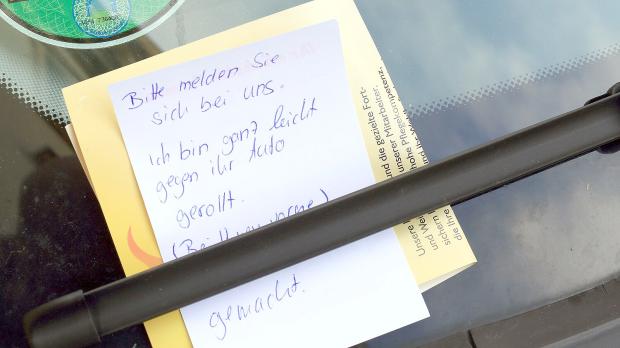 Bitte melden Sie
sich bei uns.
Ich bin ganz leicht
gegen ihr Auto
gerollt.
gemacht.
und die gezielte Fort-
unserer Mitarbeiter,
hohe Pflegekompetenz.
Unsere
und
sichern
die Ihre